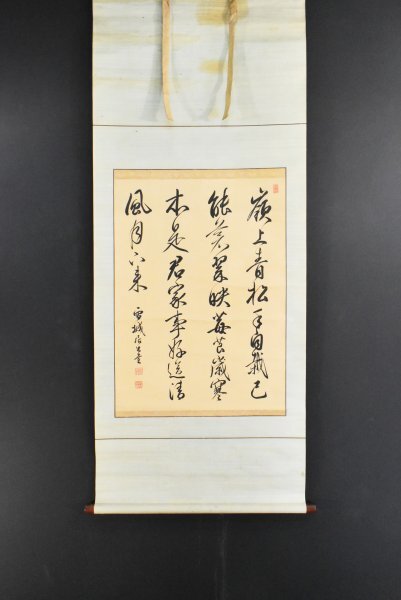 嶺上青松手自栽已
能蒼翠映莓苔歲寒
本是君家事好送清
風月下来
雪城